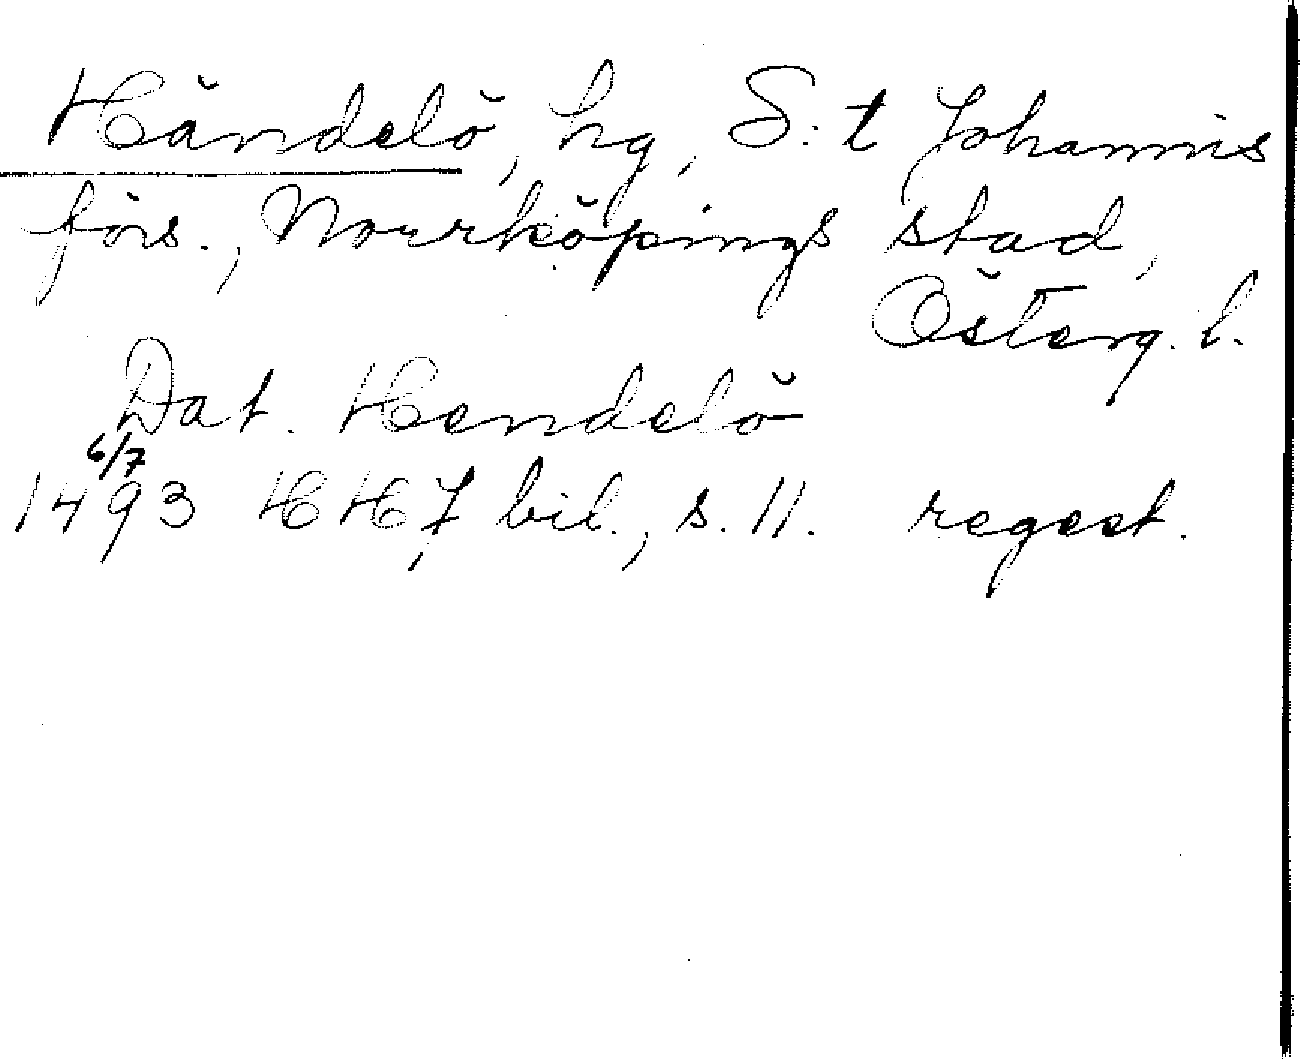 Händelö, hg, S:t Johannis
förs., Norrköpings stad,
Österg. l.
Dat. Hendelö
6/7
1493 HH 7, bil., s. 11. regest.